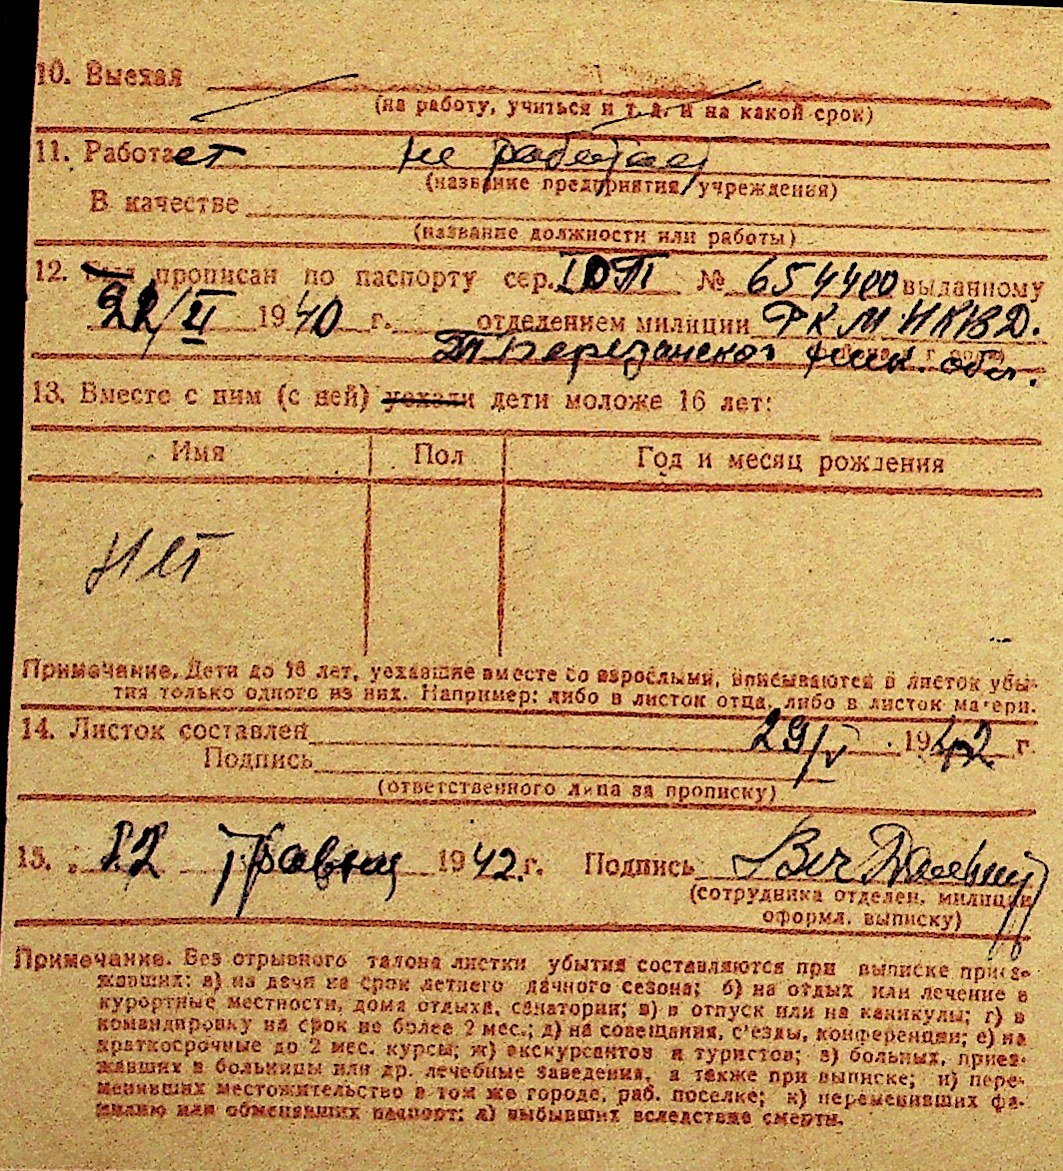 10. Выехал
(на работу, учиться и т. д. и на какой срок)
11. Работает не работает
(название предприятия, учреждения)
В качестве
(название должности или работы)
12. прописан по паспорту сер. № 654400 выданному
22/II 1940 г. отделением милиции РКМ НКВД.
обл.
13. Вместе с ним (с ней) уехали дети моложе 16 лет:
Имя Пол Год и месяц рождения
Нет
Примечание. Дети до 16 лет, уехавшие вместе со взрослыми, вписываются в листок убы-
тия только одного из них. Например: либо в листок отца, либо в листок матери.
14. Листок составлен 29/V 1942 г.
Подпись
(ответственного лица за прописку)
15. „ 12 травня 1942 г. Подпись
(сотрудника отделен. милиции
оформл. выписку)
Примечание. Без отрывного талона листки убытия составляются при выписке приез-
жавших: а) на дачи на срок летнего дачного сезона; б) на отдых или лечение в
курортные местности, дома отдыха, санатории; в) в отпуск или на каникулы; г) в
командировку на срок не более 2 мес.; д) на совещания, с'езды, конференции; е) на
краткосрочные до 2 мес. курсы; ж) экскурсантов и туристов; з) больных, приез-
жавших в больницы или др. лечебные заведения, а также при выписке; и) пере-
менивших местожительство в том же городе, раб. поселке; к) переменивших фа-
милию или обменявших паспорт; л) выбывших вследствие смерти.